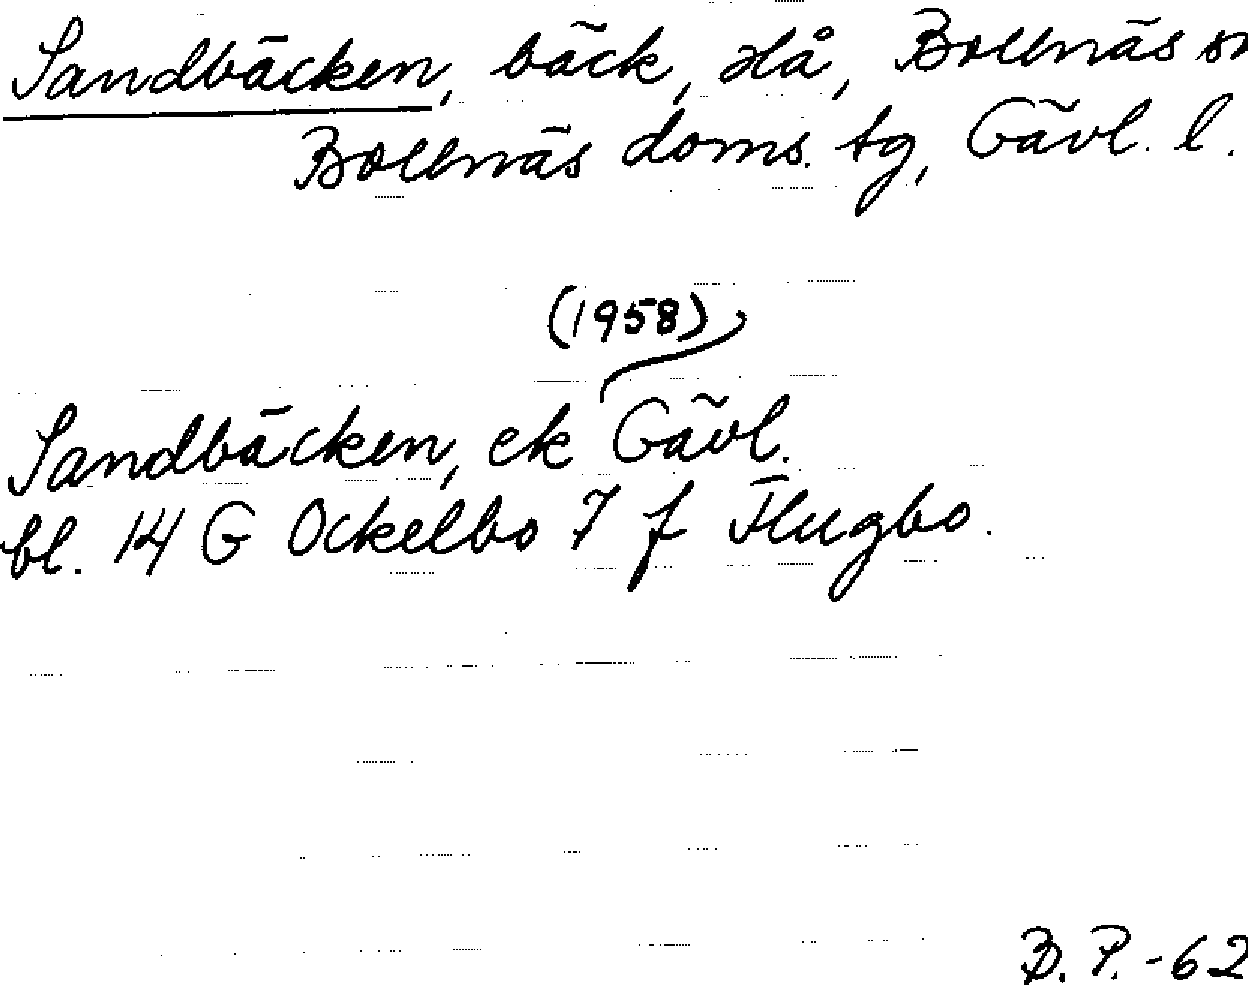 Sandbäcken, bäck, då, Bollnäs sn
Bollnäs doms. tg, Gävl. l.
(1958)
Sandbäcken, ek Gävl.
bl. 14 G Ockelbo 7 f Flugbo.
B. P. -62